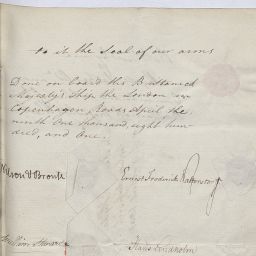 to it the Seal of our arms
Done on board His Britannick
Majesty's Ship the London in
Copenhagen Roads April the
ninth One thousand, eight hun
dred, and One.
Nelson & Bronte
Ernst Frederick Walterstorff
William Stewart
Hans Lindholm